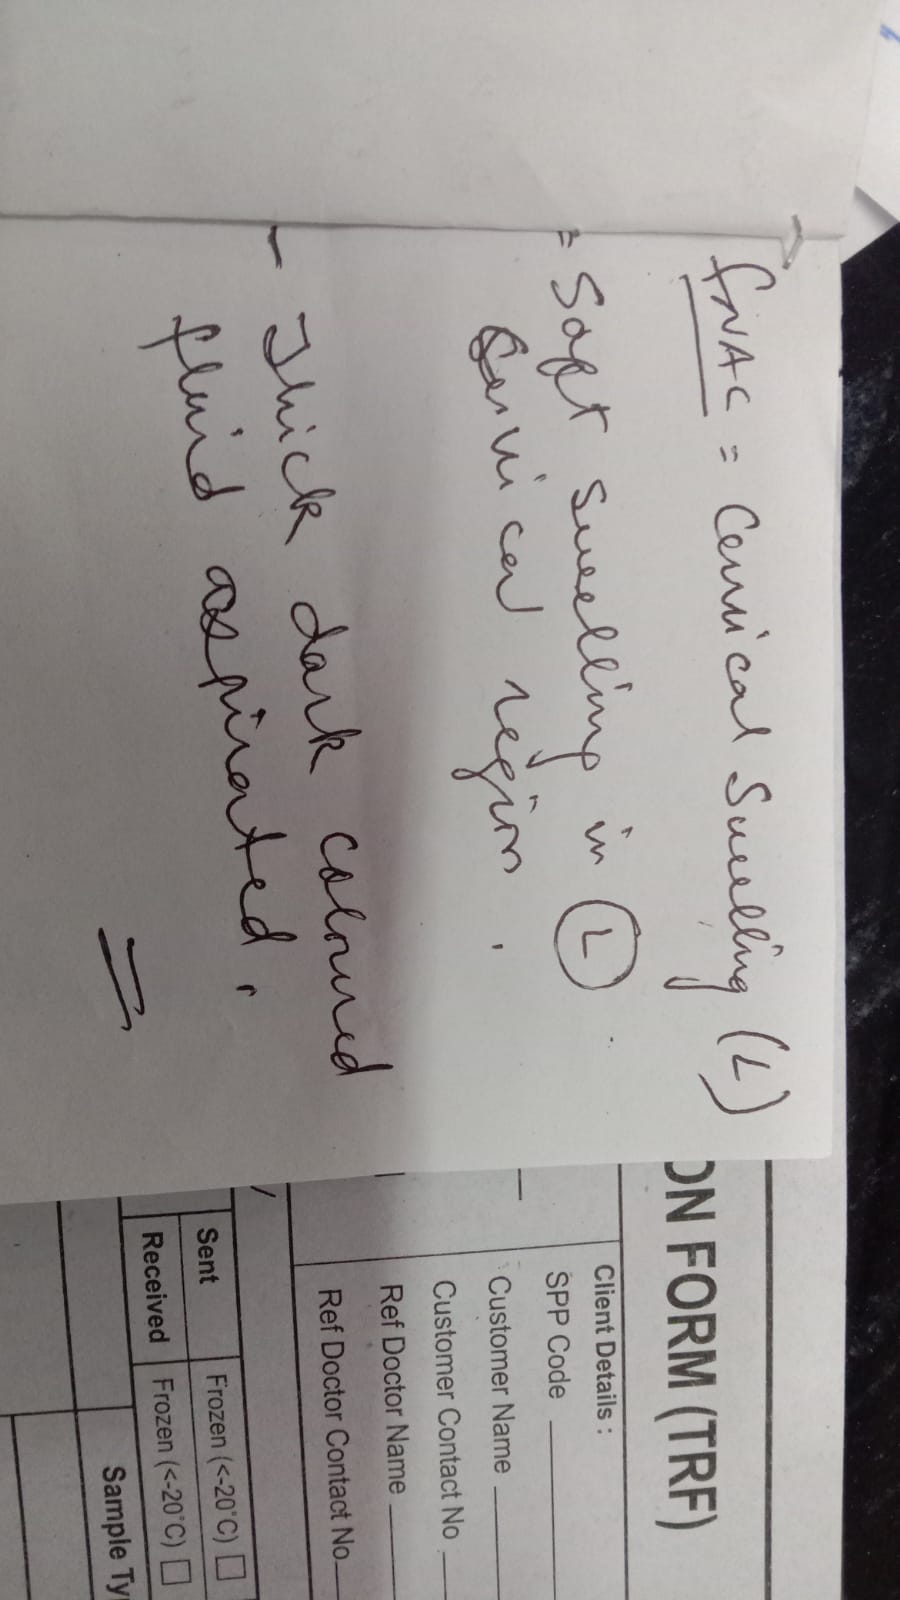 FNAC = Cervical Swelling (L)
= Soft swelling in (L)
Cervical region.
- Thick dark coloured
fluid aspirated.
ON FORM (TRF)
Client Details :
SPP Code
Customer Name
Customer Contact No
Ref Doctor Name
Ref Doctor Contact No
Sent Frozen (<-20°C)
Received Frozen (<-20°C)
Sample Ty